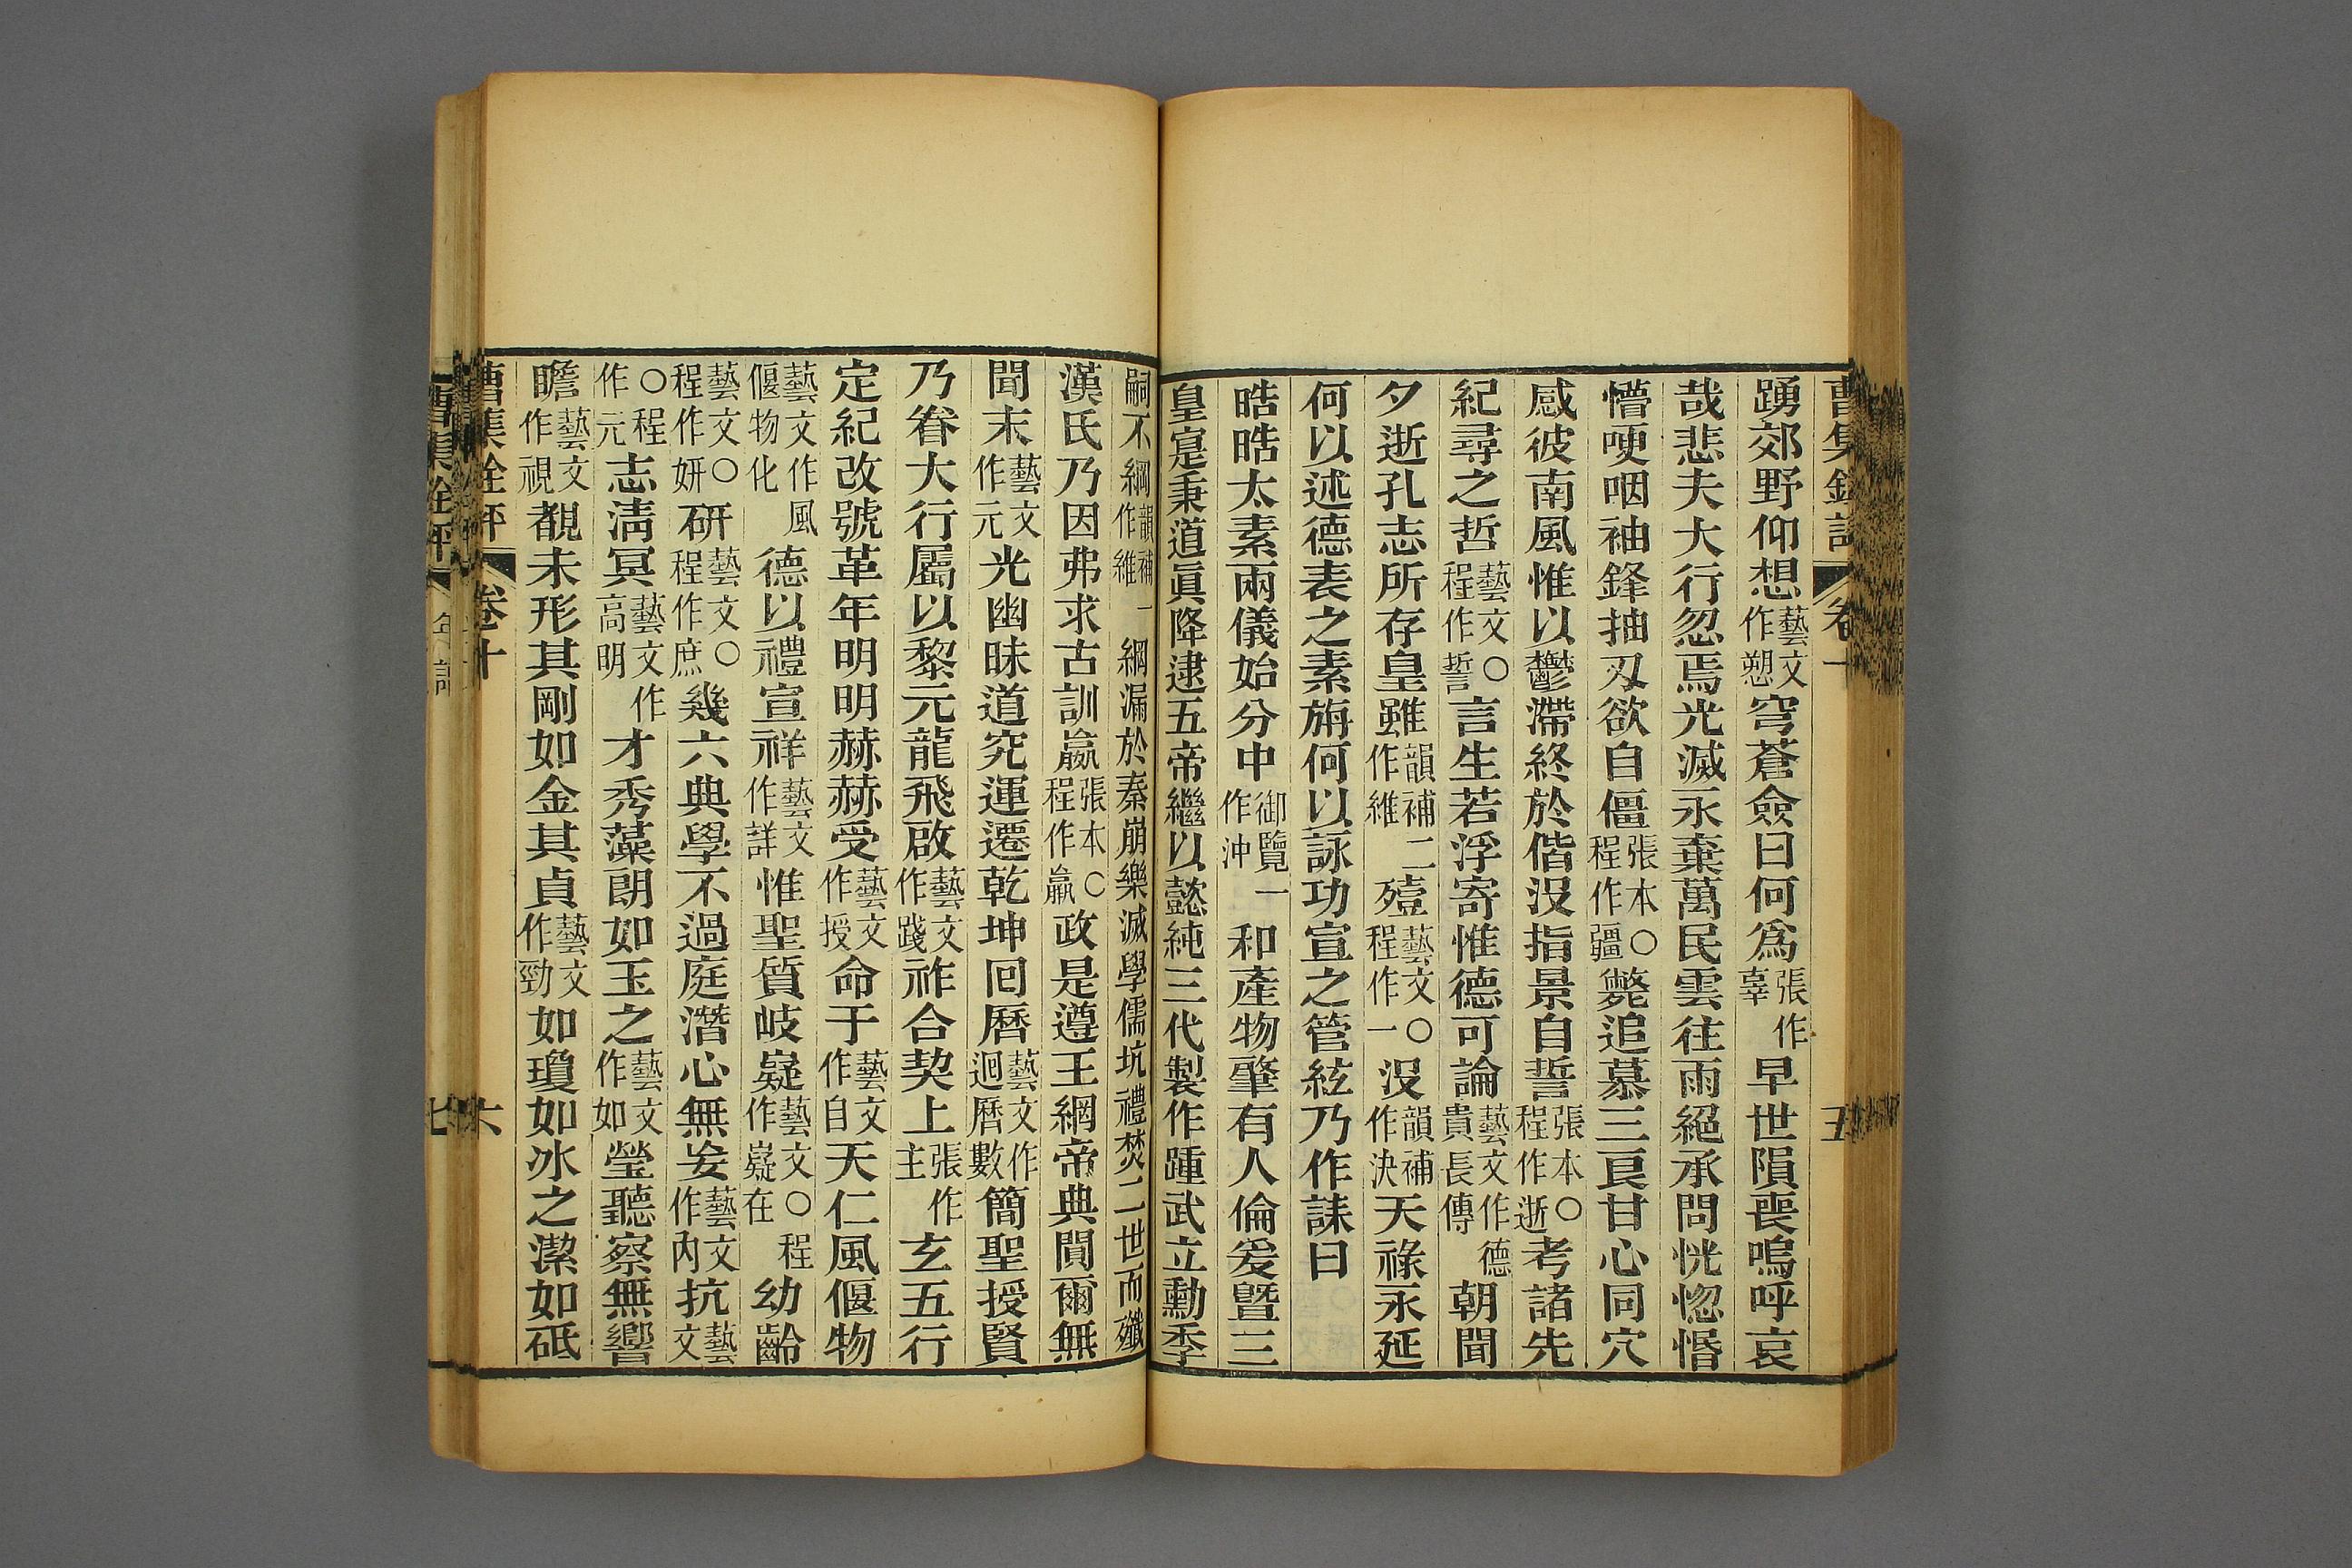 曹集銓評
卷十
五
踴郊野仰想藝文作愬穹蒼僉曰何爲張作辜早世隕喪嗚呼哀
哉悲夫大行忽焉光滅永棄萬民雲往雨絕承問恍惚惛
懵哽咽袖鋒抽刃欲自僵張本○程作彊斃追慕三良甘心同穴
感彼南風惟以鬱滯終於偕沒指景自誓張本○程作逝考諸先
紀尋之哲藝文○程作誓言生若浮寄惟德可論藝文作德貴長傳朝聞
夕逝孔志所存皇雖韻補二作維殪藝文○程作一沒韻補作決天祿永延
何以述德表之素旃何以詠功宣之管絃乃作誄曰
晧晧太素兩儀始分中御覽一作沖和產物肇有人倫爰曁三
皇寔秉道眞降逮五帝繼以懿純三代製作踵武立勳季
嗣不綱韻補一作維網漏於秦崩樂滅學儒坑禮焚二世而殲
漢氏乃因弗求古訓嬴張本○程作羸政是遵王綱帝典闃爾無
聞末藝文作元光幽昧道究運遷乾坤回曆藝文作迴曆數簡聖授賢
乃眷大行屬以黎元龍飛啟藝文作踐祚合契上張作主玄五行
定紀改號革年明明赫赫受藝文作授命于藝文作自天仁風偃物
藝文作風偃物化德以禮宣祥藝文作詳惟聖質岐嶷藝文○程作嶷在幼齡
藝文○程作妍研藝文○程作庶幾六典學不過庭潛心無妄藝文作內抗藝文
○程作元志淸冥藝文作高明才秀藻朗如玉之藝文作如瑩聽察無響
瞻藝文作視覩未形其剛如金其貞藝文作勁如瓊如冰之潔如砥
曹集銓評
卷十
六
曹集銓評
年譜
七